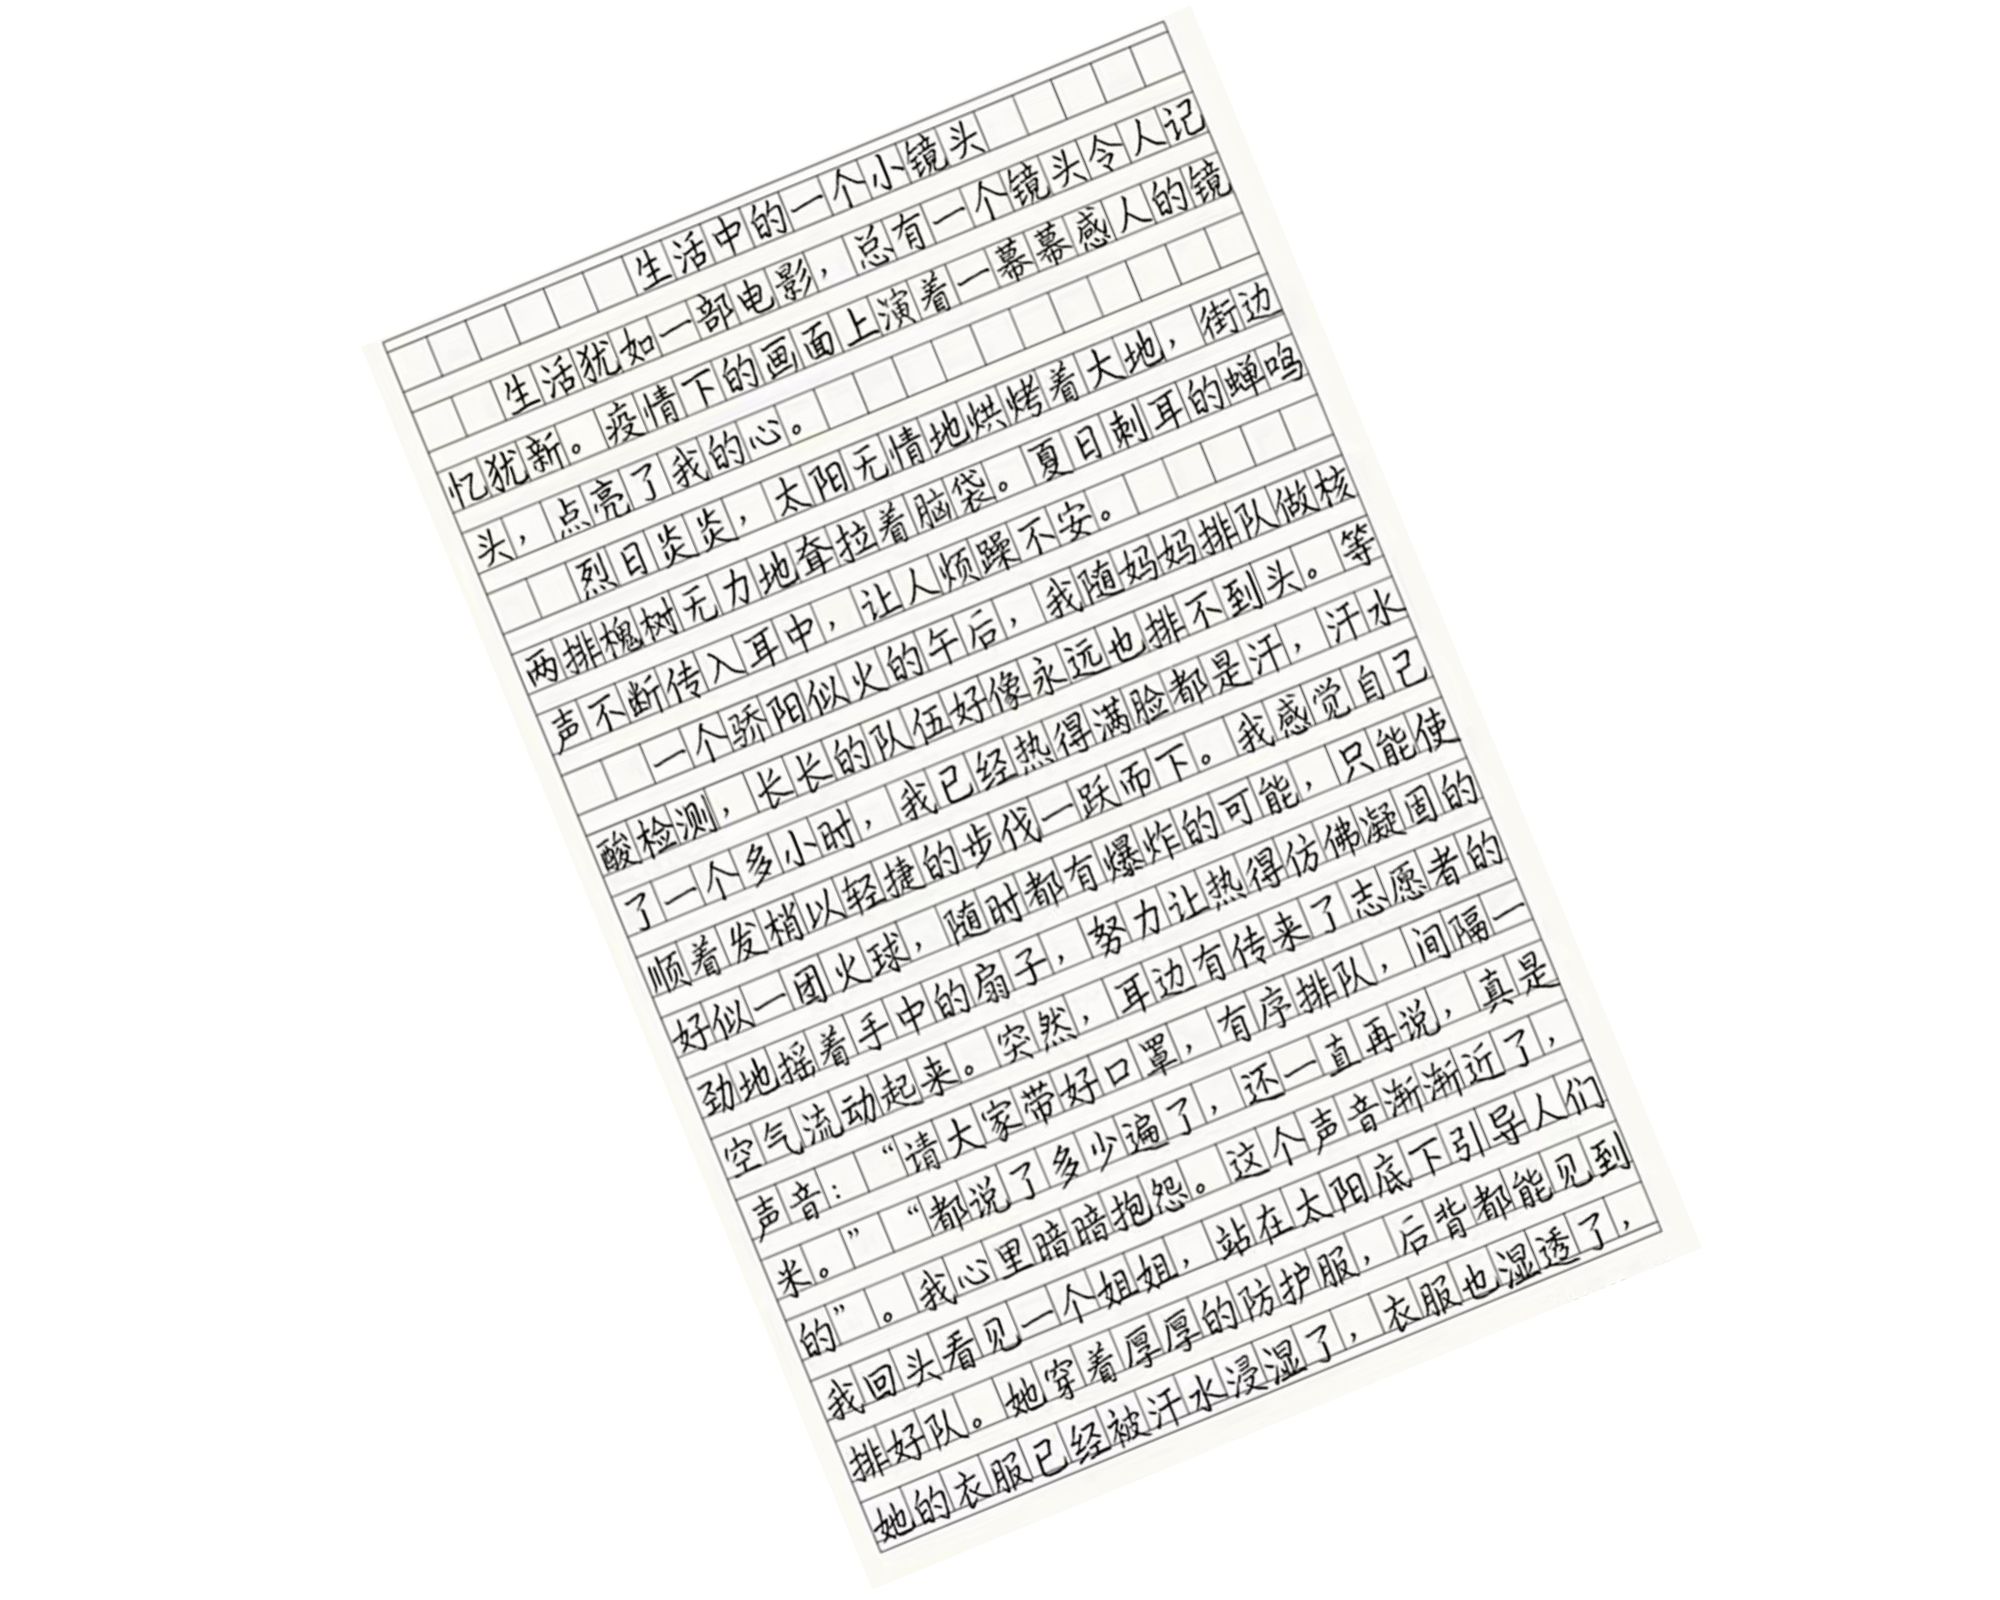 生活中的一个小镜头
生活犹如一部电影，总有一个镜头令人记
忆犹新。疫情下的画面上演着一幕幕感人的镜
头，点亮了我的心。
烈日炎炎，太阳无情地烘烤着大地，街边
两排槐树无力地耷拉着脑袋。夏日刺耳的蝉鸣
声不断传入耳中，让人烦躁不安。
一个骄阳似火的午后，我随妈妈排队做核
酸检测，长长的队伍好像永远也排不到头。等
了一个多小时，我已经热得满脸都是汗，汗水
顺着发梢以轻捷的步伐一跃而下。我感觉自己
好似一团火球，随时都有爆炸的可能，只能使
劲地摇着手中的扇子，努力让热得仿佛凝固的
空气流动起来。突然，耳边有传来了志愿者的
声音：“请大家带好口罩，有序排队，间隔一
米。”“都说了多少遍了，还一直再说，真是
的”。我心里暗暗抱怨。这个声音渐渐近了，
我回头看见一个姐姐，站在太阳底下引导人们
排好队。她穿着厚厚的防护服，后背都能见到
她的衣服已经被汗水浸湿了，衣服也湿透了，